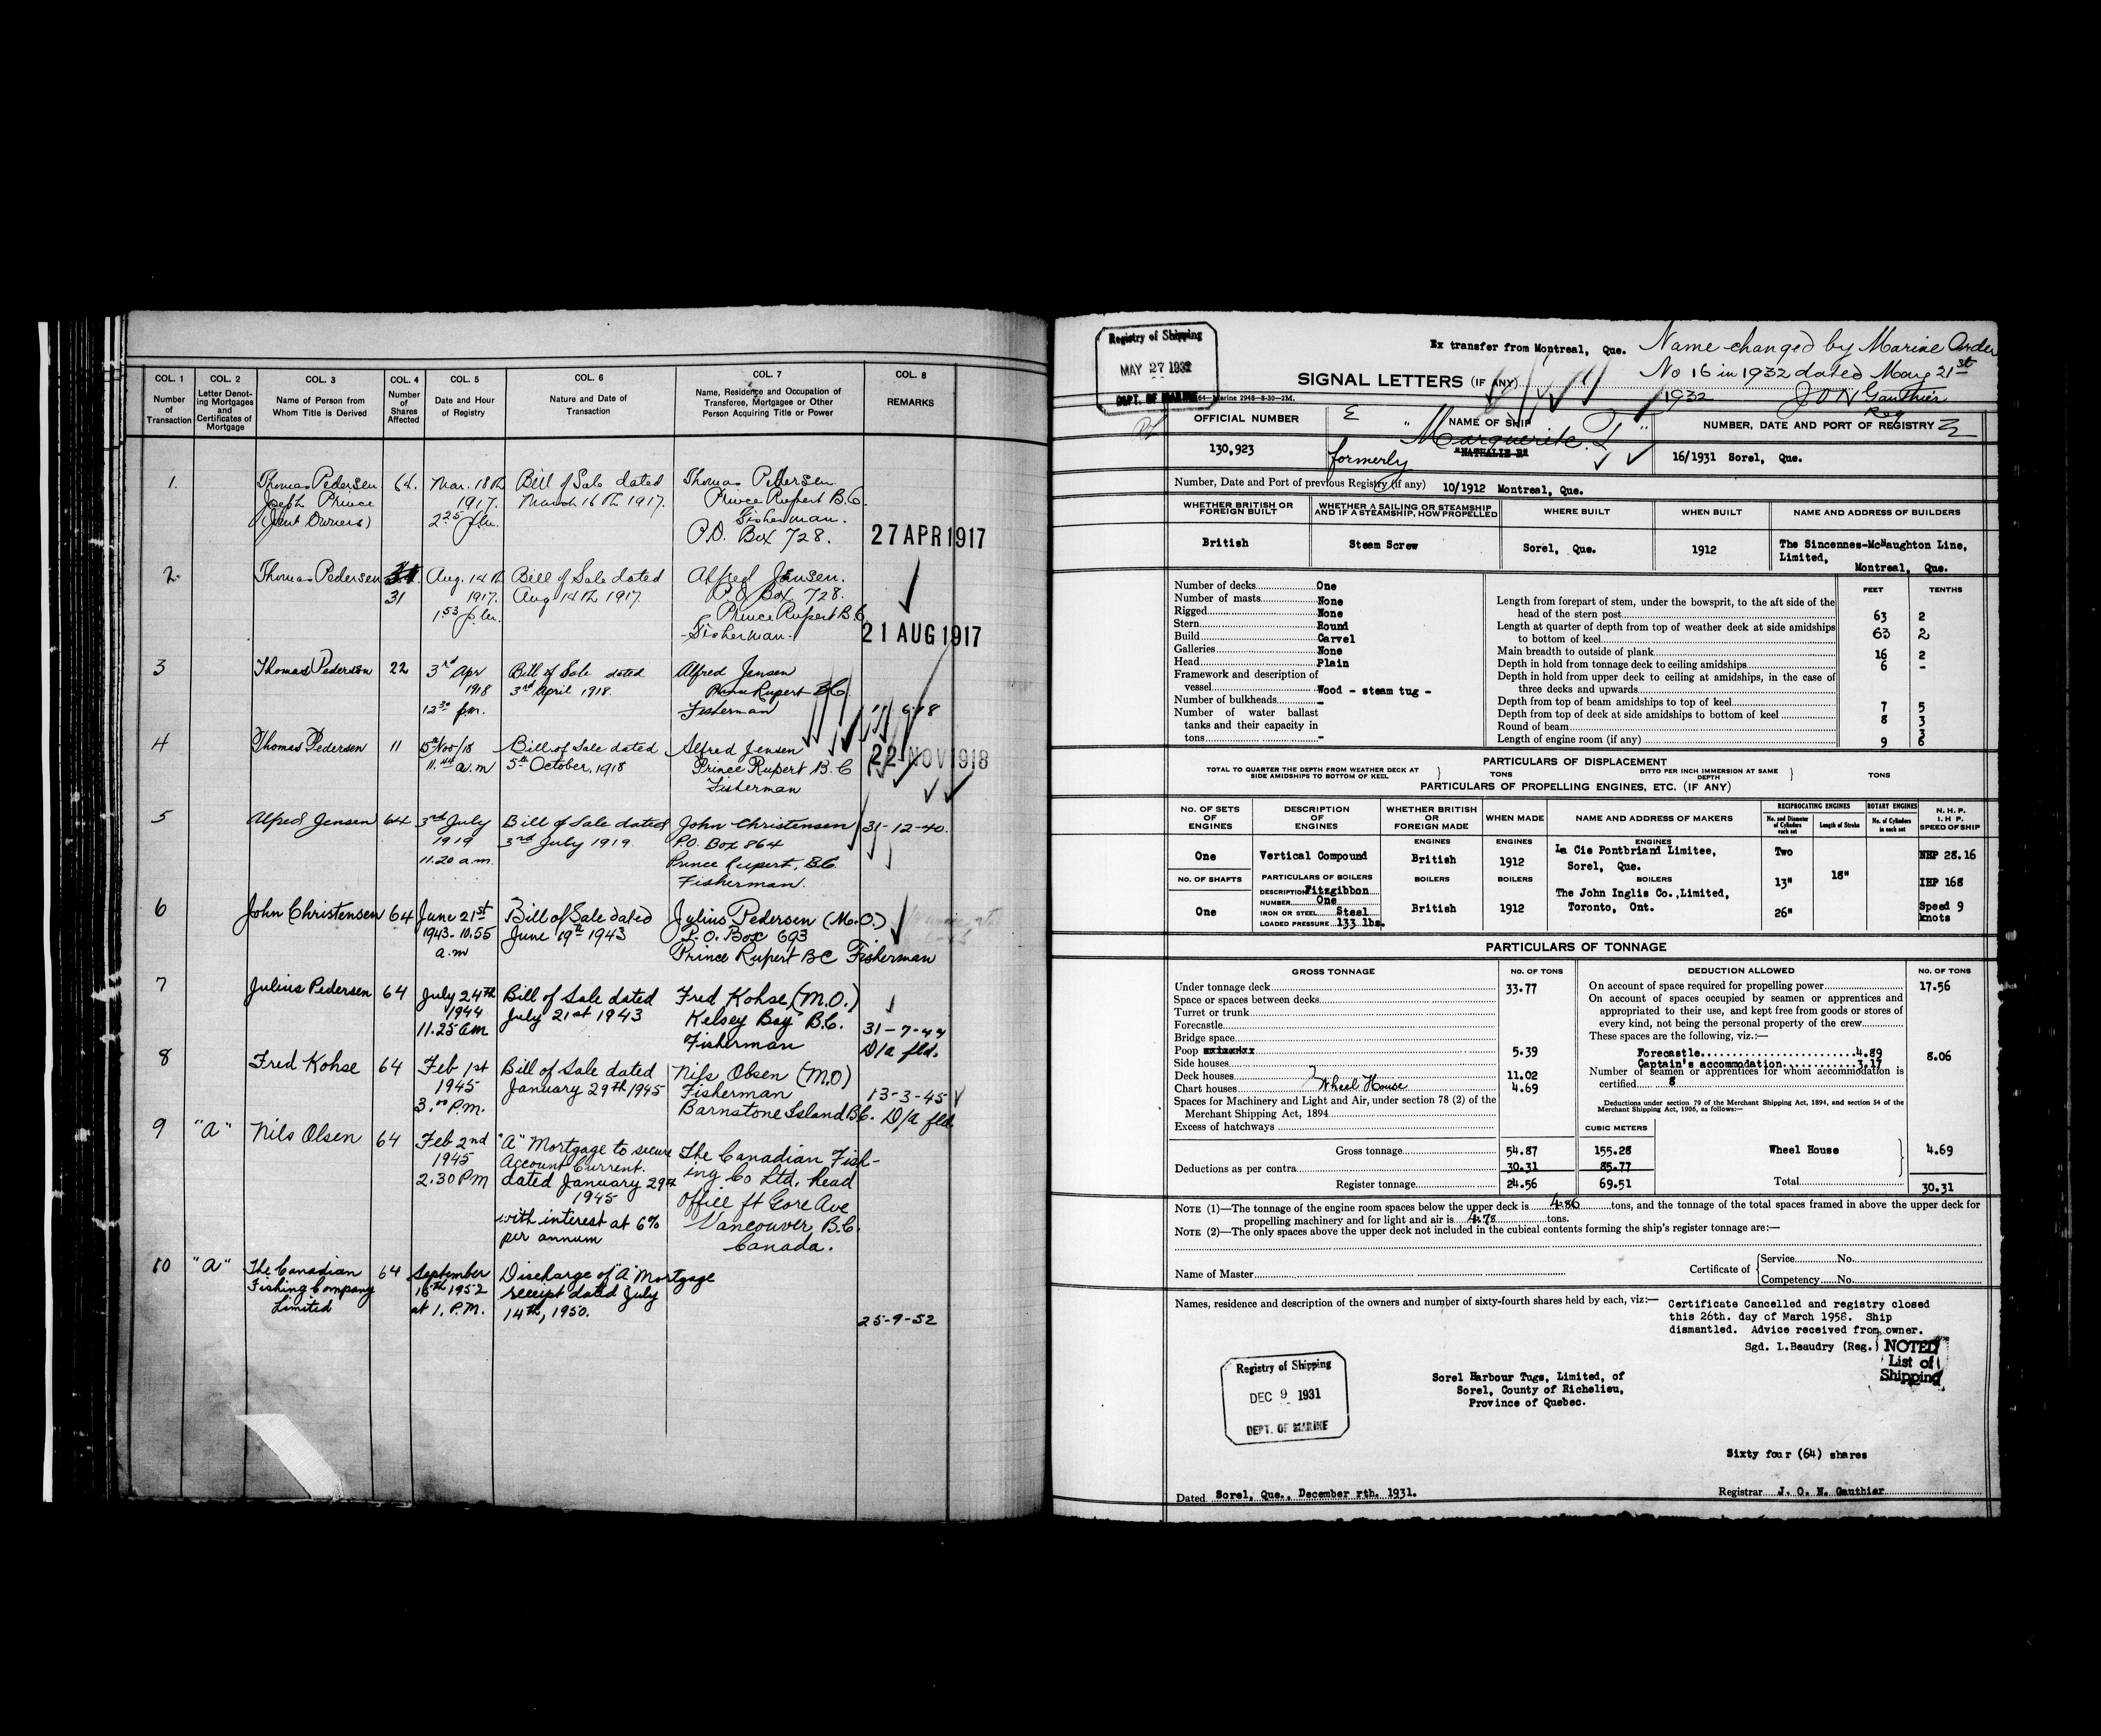 COL. 1 COL. 2 COL. 3 COL. 4 COL. 5 COL. 6 COL. 7 COL. 8
Number of Transaction
Letter Denoting Mortgages and Certificates of Mortgage
Name of Person from Whom Title is Derived
Number of Shares Affected
Date and Hour of Registry
Nature and Date of Transaction
Name, Residence and Occupation of Transferee, Mortgagee or Other Person Acquiring Title or Power
REMARKS
1. Thomas Pedersen 64. Mar. 18th Bill of Sale dated Thomas Pedersen
Joseph Prince 1917. March 16th 1917. Prince Rupert B.C.
(Joint Owners) 2.25 p.m. Fisherman.
P.O. Box 728. 27 APR 1917
2. Thomas Pedersen Aug. 14th Bill of Sale dated Alfred Jensen.
31 1917. Aug 14th 1917. P.O Box 728.
1.53 p.m. Prince Rupert B.C.
Fisherman. 21 AUG 1917
3 Thomas Pedersen 22 3rd Apr Bill of Sale dated Alfred Jensen
1918 3rd April 1918. Prince Rupert BC
12.30 pm. Fisherman
4 Thomas Pedersen 11 15th Nov/18 Bill of Sale dated Alfred Jensen
11.44 a.m 5th October, 1918 Prince Rupert B.C 22 NOV 1918
Fisherman
5 Alfred Jensen 64 3rd July Bill of Sale dated John Christensen 31-12-40.
1919 3rd July 1919. P.O. Box 864
11.20 a.m. Prince Rupert, B.C.
Fisherman.
6 John Christensen 64 June 21st Bill of Sale dated Julius Pedersen (M.O.)
1943-10.55 June 19th 1943 P.O. Box 693
a.m Prince Rupert BC Fisherman
7 Julius Pedersen 64 July 24th Bill of Sale dated Fred Kohse (M.O.)
1944 July 21st 1943 Kelsey Bay B.C. 31-7-44
11.25 AM Fisherman D/a fld.
8 Fred Kohse 64 Feb 1st Bill of Sale dated Nils Olsen (M.O)
1945 January 29th 1945 Fisherman 13-3-45
3.00 P.M. Barnstone Island B.C. D/a fld.
9 "A" Nils Olsen 64 Feb 2nd "A" Mortgage to secure The Canadian Fish-
1945 Account Current. ing Co Ltd, head
2.30 PM dated January 29th office ft Gore Ave
1945 Vancouver B.C.
with interest at 6% Canada.
per annum
10 "A" The Canadian 64 September Discharge of "A" Mortgage
Fishing Company 16th 1952 receipt dated July
Limited at 1. P.M. 14th, 1950. 25-9-52
Registry of Shipping
MAY 27 1932
DEPT. OF MARINE
Ex transfer from Montreal, Que.
Name changed by Marine Order
No 16 in 1932 dated May 21st
1932 J O N Gauthier
Reg
SIGNAL LETTERS (IF ANY)
Marine 2948-8-30-2M.
OFFICIAL NUMBER NAME OF SHIP NUMBER, DATE AND PORT OF REGISTRY
130,923 "Marguerite L" 16/1931 Sorel, Que.
formerly "NATHALIE R"
Number, Date and Port of previous Registry (if any) 10/1912 Montreal, Que.
WHETHER BRITISH OR FOREIGN BUILT
WHETHER A SAILING OR STEAMSHIP AND IF A STEAMSHIP, HOW PROPELLED
WHERE BUILT WHEN BUILT NAME AND ADDRESS OF BUILDERS
British Steam Screw Sorel, Que. 1912 The Sincennes-McNaughton Line,
Limited,
Montreal, Que.
Number of decks One
Number of masts None
Rigged None
Stern Round
Build Carvel
Galleries None
Head Plain
Framework and description of
vessel Wood - steam tug -
Number of bulkheads -
Number of water ballast
tanks and their capacity in
tons -
FEET TENTHS
Length from forepart of stem, under the bowsprit, to the aft side of the
head of the stern post 63 2
Length at quarter of depth from top of weather deck at side amidships
to bottom of keel 63 2
Main breadth to outside of plank 16 2
Depth in hold from tonnage deck to ceiling amidships 6 -
Depth in hold from upper deck to ceiling at amidships, in the case of
three decks and upwards
Depth from top of beam amidships to top of keel 7 5
Depth from top of deck at side amidships to bottom of keel 8 3
Round of beam 3
Length of engine room (if any) 9 6
PARTICULARS OF DISPLACEMENT
TOTAL TO QUARTER THE DEPTH FROM WEATHER DECK AT SIDE AMIDSHIPS TO BOTTOM OF KEEL } TONS
DITTO PER INCH IMMERSION AT SAME DEPTH } TONS
PARTICULARS OF PROPELLING ENGINES, ETC. (IF ANY)
NO. OF SETS OF ENGINES
DESCRIPTION OF ENGINES
WHETHER BRITISH OR FOREIGN MADE
WHEN MADE
NAME AND ADDRESS OF MAKERS
RECIPROCATING ENGINES
No. and Diameter of Cylinders each set
Length of Stroke
ROTARY ENGINES
No. of Cylinders in each set
N. H. P.
I. H. P.
SPEED OF SHIP
ENGINES ENGINES ENGINES
One Vertical Compound British 1912 La Cie Pontbriand Limitee, Two NHP 28.16
Sorel, Que.
NO. OF SHAFTS PARTICULARS OF BOILERS BOILERS BOILERS BOILERS 13" 18" IHP 168
DESCRIPTION Fitzgibbon The John Inglis Co., Limited,
NUMBER One Toronto, Ont.
One IRON OR STEEL Steel British 1912 26" Speed 9
LOADED PRESSURE 133 lbs. knots
PARTICULARS OF TONNAGE
GROSS TONNAGE NO. OF TONS DEDUCTION ALLOWED NO. OF TONS
Under tonnage deck 33.77
Space or spaces between decks
Turret or trunk
Forecastle
Bridge space
Poop 5.39
Side houses
Deck houses 11.02
Chart houses Wheel House 4.69
Spaces for Machinery and Light and Air, under section 78 (2) of the
Merchant Shipping Act, 1894
Excess of hatchways
On account of space required for propelling power 17.56
On account of spaces occupied by seamen or apprentices and
appropriated to their use, and kept free from goods or stores of
every kind, not being the personal property of the crew
These spaces are the following, viz.:—
Forecastle 4.89
Captain's accommodation 3.17 8.06
Number of seamen or apprentices for whom accommodation is
certified 8
Deductions under section 79 of the Merchant Shipping Act, 1894, and section 54 of the
Merchant Shipping Act, 1906, as follows:—
CUBIC METERS
Gross tonnage 54.87 155.28 Wheel House 4.69
Deductions as per contra 30.31 85.77
Register tonnage 24.56 69.51 Total 30.31
NOTE (1)—The tonnage of the engine room spaces below the upper deck is 4.86 tons, and the tonnage of the total spaces framed in above the upper deck for
propelling machinery and for light and air is 4.78 tons.
NOTE (2)—The only spaces above the upper deck not included in the cubical contents forming the ship's register tonnage are:—
Name of Master Certificate of { Service No.
Competency No.
Names, residence and description of the owners and number of sixty-fourth shares held by each, viz:—
Certificate Cancelled and registry closed
this 26th. day of March 1958. Ship
dismantled. Advice received from owner.
Sgd. L.Beaudry (Reg.)
NOTED
List of
Shipping
Registry of Shipping
DEC 9 1931
DEPT. OF MARINE
Sorel Harbour Tugs, Limited, of
Sorel, County of Richelieu,
Province of Quebec.
Sixty four (64) shares
Dated Sorel, Que., December rth. 1931. Registrar J. O. N. Gauthier